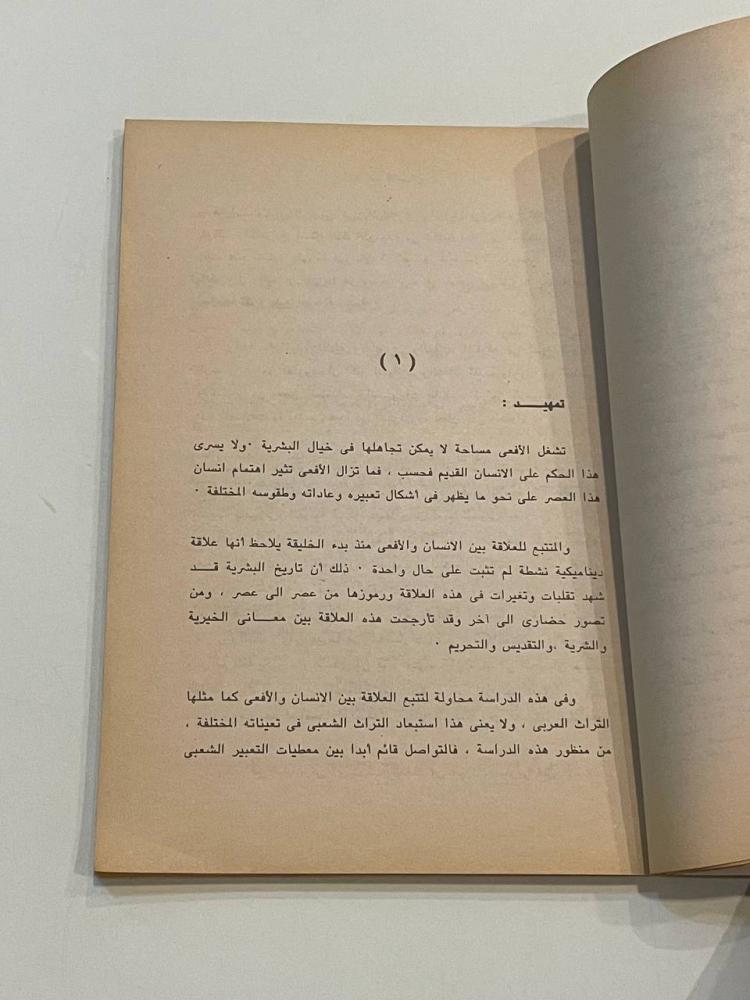 ( ١ )
تمهيـــــد :
تشغل الأفعى مساحة لا يمكن تجاهلها فى خيال البشرية ٠ولا يسرى
هذا الحكم على الانسان القديم فحسب ، فما تزال الأفعى تثير اهتمام انسان
هذا العصر على نحو ما يظهر فى أشكال تعبيره وعاداته وطقوسه المختلفة ٠
والمتتبع للعلاقة بين الانسان والأفعى منذ بدء الخليقة يلاحظ أنها علاقة
ديناميكية نشطة لم تثبت على حال واحدة ٠ ذلك أن تاريخ البشرية قـــد
شهد تقلبات وتغيرات فى هذه العلاقة ورموزها من عصر الى عصر ، ومن
تصور حضارى الى آخر وقد تأرجحت هذه العلاقة بين معـــانى الخيرية
والشرية ،والتقديس والتحريم ٠
وفى هذه الدراسة محاولة لتتبع العلاقة بين الانسان والأفعى كما مثلها
التراث العربى ، ولا يعنى هذا استبعاد التراث الشعبى فى تعيناته المختلفة ،
من منظور هذه الدراسة ، فالتواصل قائم أبدا بين معطيات التعبير الشعبى